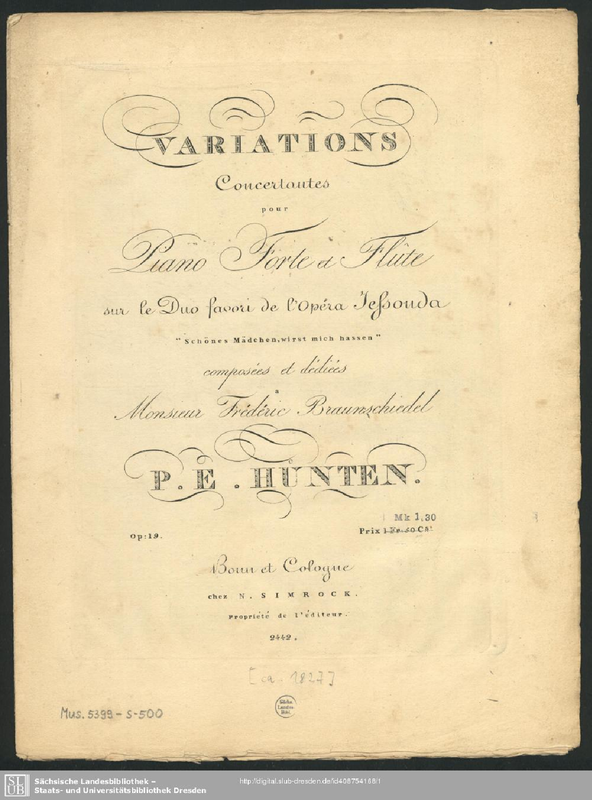 VARIATIONS
Concertantes
pour
Piano Forte et Flûte
sur le Duo favori de l'Opéra Jessonda
"Schönes Mädchen, wirst mich hassen"
composées et dédiées
à
Monsieur Frédéric Braunschiedel
P. E. HÜNTEN.
Mk 1,30
Op: 19.
Prix
Bonn et Cologne
chez N. SIMROCK.
Propriété de l'éditeur.
2442.
[ca. 1827]
Mus. 5399-S-500
Sächsische Landesbibliothek –
Staats- und Universitätsbibliothek Dresden
http://digital.slub-dresden.de/id408754168/1